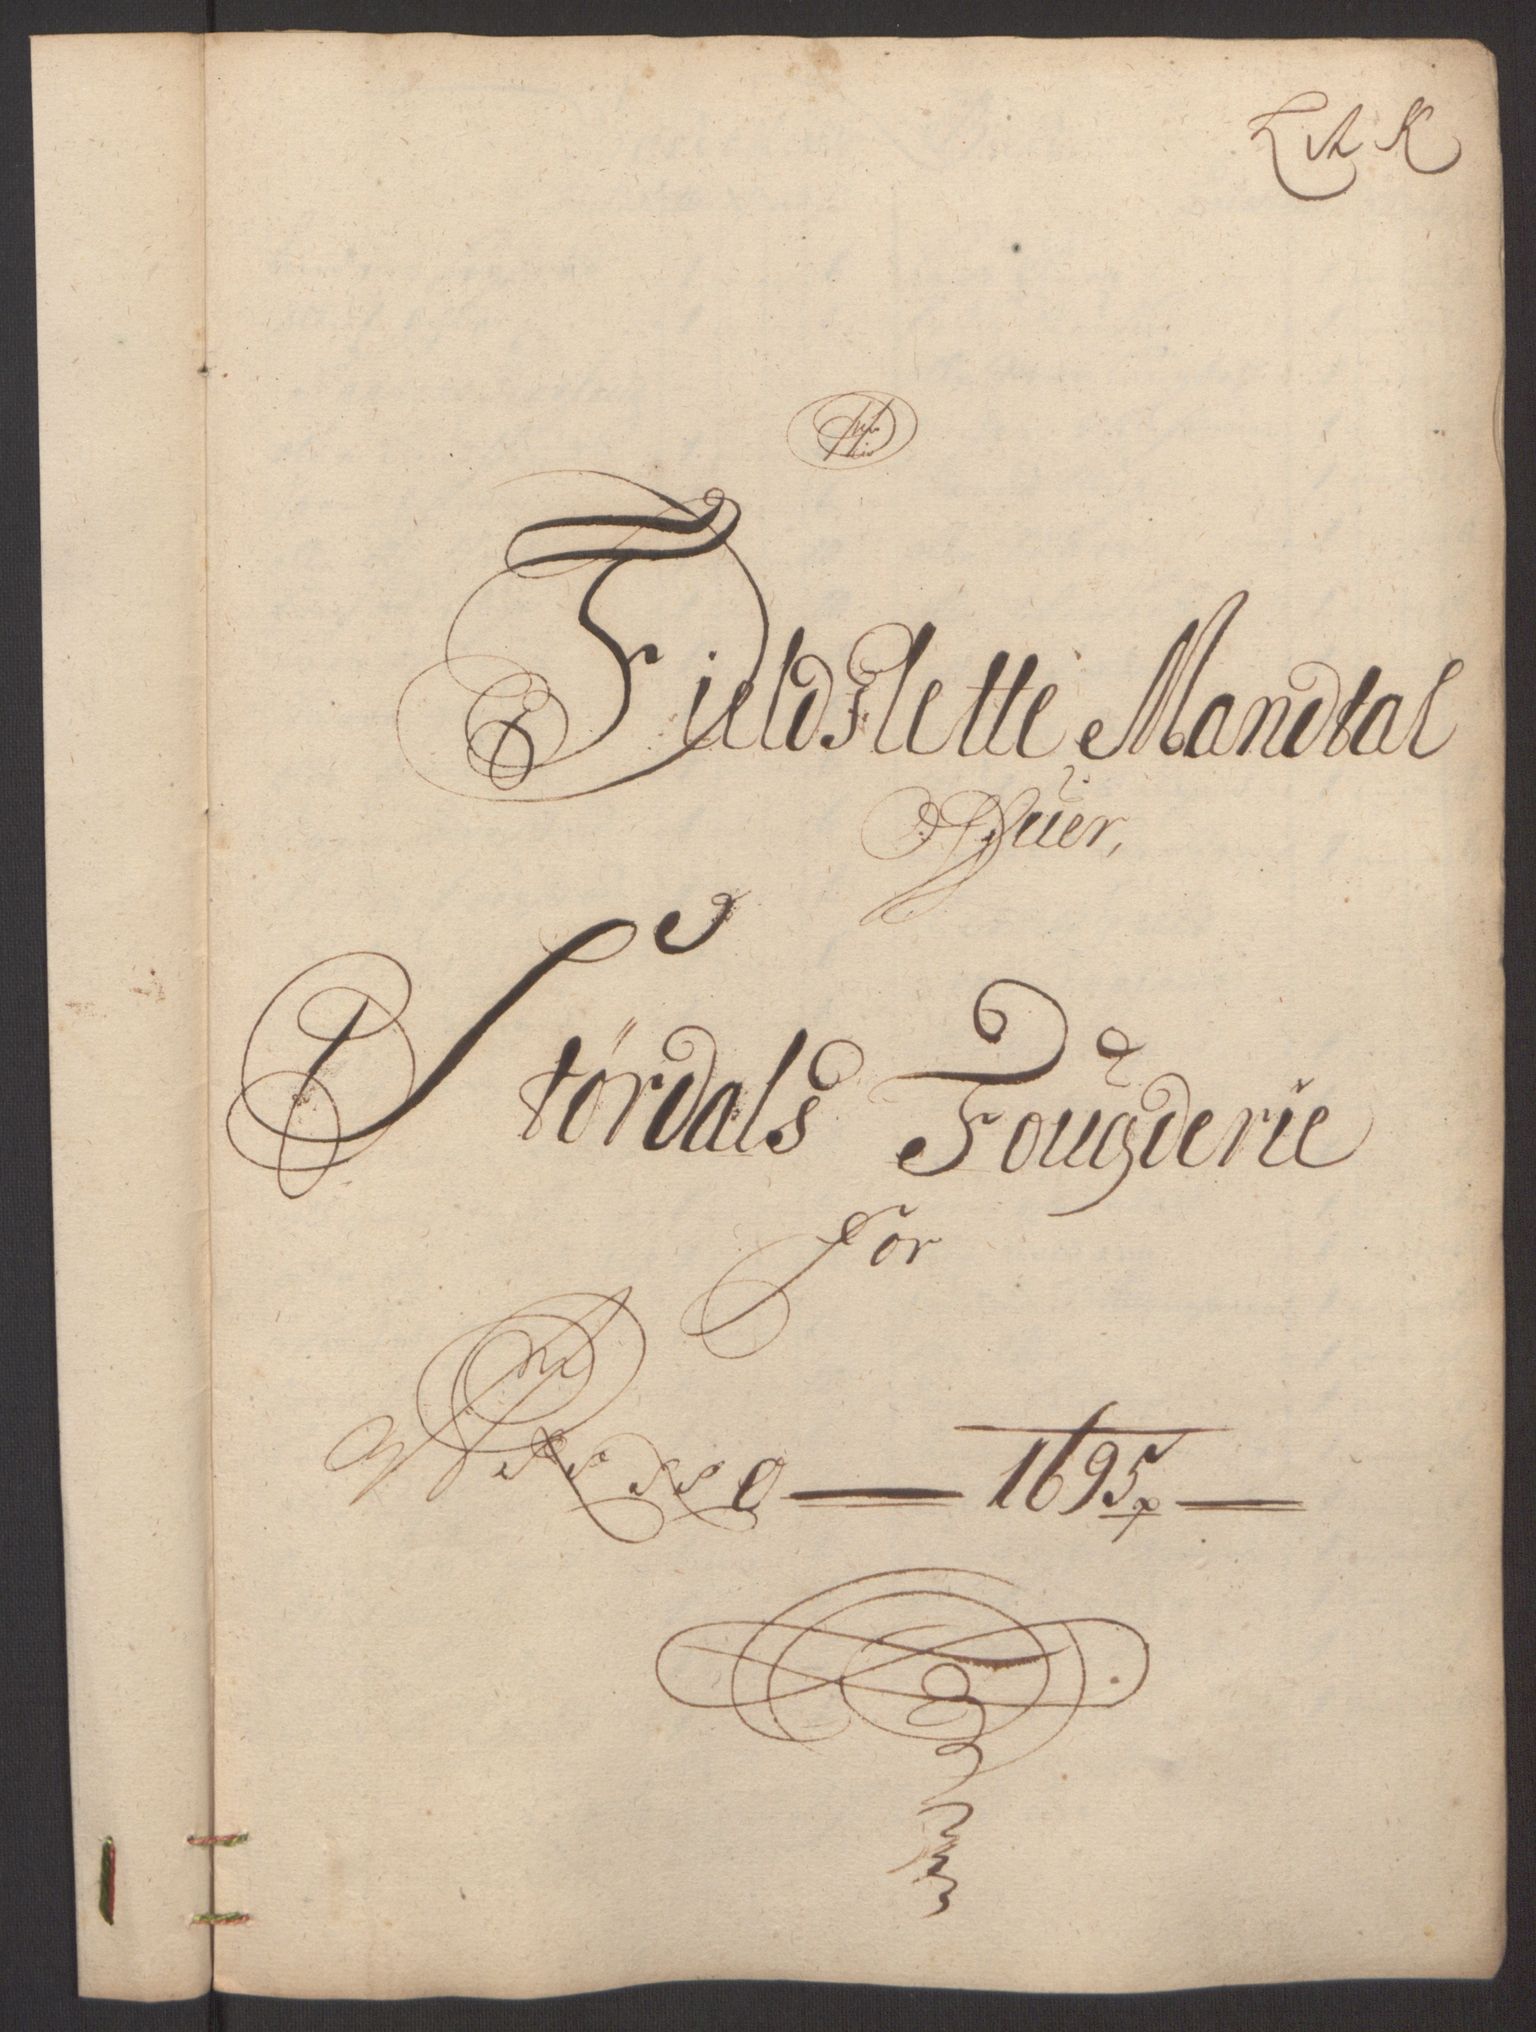 L A K
Fieldslette Mandtal
Ofuer,
Størdals Fougderie
for
Anno 1695